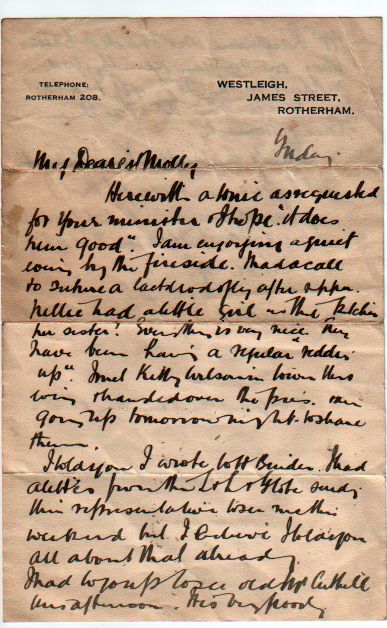 TELEPHONE:
ROTHERHAM 208.
WESTLEIGH,
JAMES STREET,
ROTHERHAM.
Friday.
My Dearest Molly
Herewith a tonic as requested
for your minister & I hope "it does
him good". I am enjoying a quiet
evening by the fireside. Had a call
to suture a lacerated after supper.
Nellie had a little girl in the kitchen
her sister! Everything is very nice they
have been having a regular "reddin
up". I met Kitty Wilson in town this
evening & handed over the pres. am
going up tomorrow night to share
them.
I told you I wrote to Binder. I had
a letter from the L & L & Globe saying
their representative to see me this
weekend but I believe I told you
all about that already
I had to go up to see old Mr Cuthill
this afternoon. He is very poorly